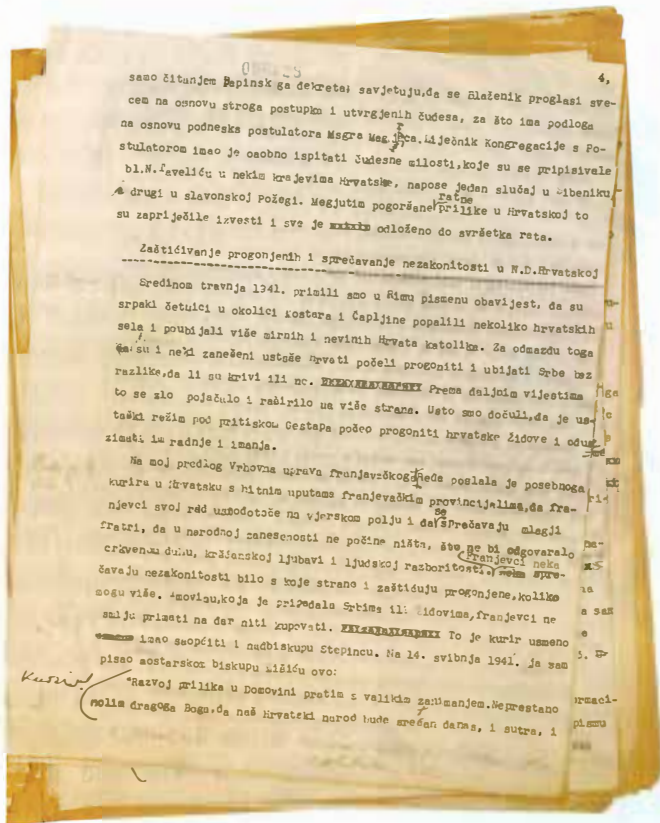 4,
samo čitanjem Papinsk ga dekreta; savjetuju,da se Blaženik proglasi sve-
cem na osnovu stroga postupka i utvrgjenih čudesa, za što ima podloga
na osnovu podneska postulatora Msgra Liječnik Kongregacije s Po-
stulatorom imao je osobno ispitati čudesne milosti,koje su se pripisivale
bl.N.Taveliću u nekim krajevima Hrvatske, napose jedan slučaj u Šibeniku,
a drugi u slavonskoj Požegi. Megjutim pogoršane ratne prilike u Hrvatskoj to
su zapriječile izvesti i sve je odloženo do svršetka rata.
Zaštićivanje progonjenih i sprečavanje nezakonitosti u N.D.Hrvatskoj
Sredinom travnja 1941. primili smo u Rimu pismenu obavijest, da su
srpski četnici u okolici Mostara i Čapljine popalili nekoliko hrvatskih
sela i poubijali više mirnih i nevinih Hrvata katolika. Za odmazdu toga
da su i neki zanešeni ustaše Hrvati počeli progoniti i ubijati Srbe bez
razlike,da li su krivi ili ne. Prema daljnim vijestima
to se zlo pojačalo i raširilo na više strana. Usto smo dočuli,da je us-
taški režim pod pritiskom Gestapa počeo progoniti hrvatske Židove i oduz
zimati im radnje i imanja.
Na moj predlog Vrhovna uprava franjevačkog reda poslala je posebnoga
kurira u Hrvatsku s hitnim uputama franjevačkim provincijalima,da fra-
njevci svoj rad usredotoče na vjerskom polju i da se sprečavaju mlagji
fratri, da u narodnoj zanesenosti ne počine ništa, što ne bi odgovaralo
crkvenom duhu, kršćanskoj ljubavi i ljudskoj razboritosti. Franjevci neka spre-
čavaju nezakonitosti bilo s koje strane i zaštićuju progonjene,koliko
mogu više. Imovinu,koja je pripadala Srbima ili Židovima,franjevci ne
smiju primati na dar niti kupovati. To je kurir usmeno
imao saopćiti i nadbiskupu Stepincu. Na 14. svibnja 1941. ja sam
pisao mostarskom biskupu Mišiću ovo:
"Razvoj prilika u Domovini pratim s velikim zanimanjem.Neprestano
molim dragoga Boga,da naš Hrvatski narod bude srećan danas, i sutra, i